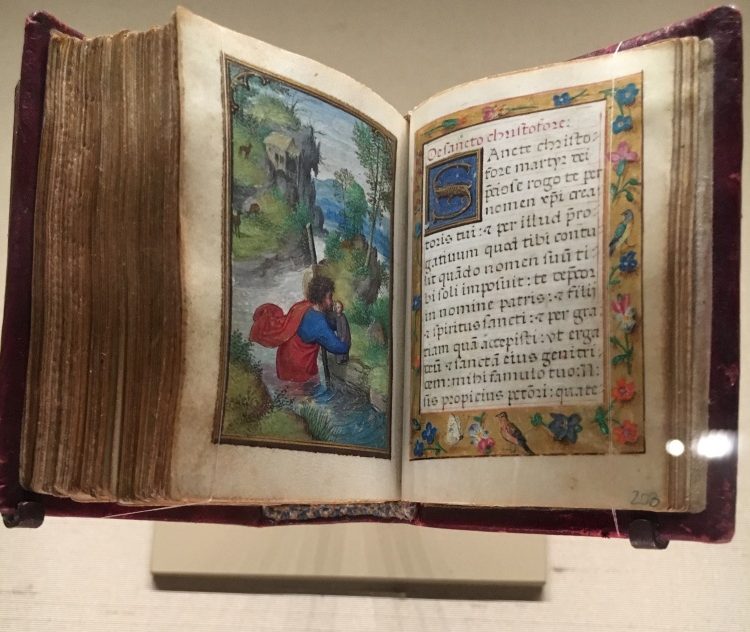 De sancto christofore:
Sancte christo-
fore martyr dei
p̄ciose rogo te per
nomen xp̄i crea
toris tui: ⁊ per illud p̄ro-
gatiuum quod tibi contu
lit quādo nomen suū ti
bi soli imposuit: te dep̄cor
in nomine patris: ⁊ filij
⁊ spiritus sancti: ⁊ per gra
tiam quā accepisti: vt erga
deū ⁊ sanctā eius genitri
cem: mihi famulo tuo: N:
sis propicius pctōri: quate
203